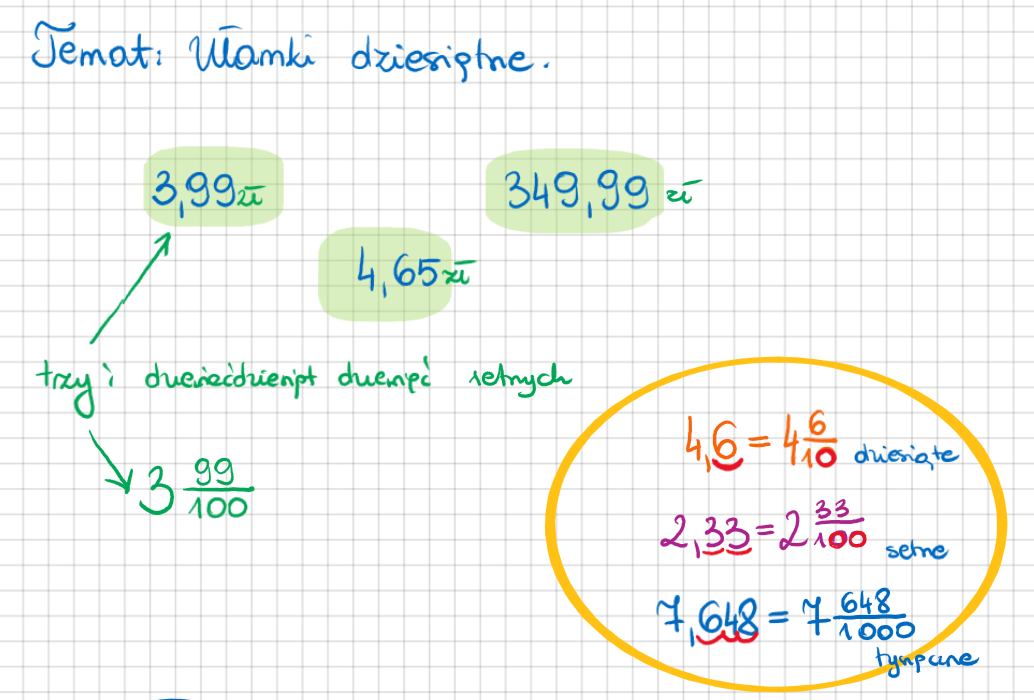 Temat: Ułamki dziesiętne.
3,99 zł
349,99 zł
4,65 zł
trzy i dziewięćdziesiąt dziewięć setnych
3 99/100
4,6 = 4 6/10 dziesiąte
2,33 = 2 33/100 setne
7,648 = 7 648/1000
tysięczne